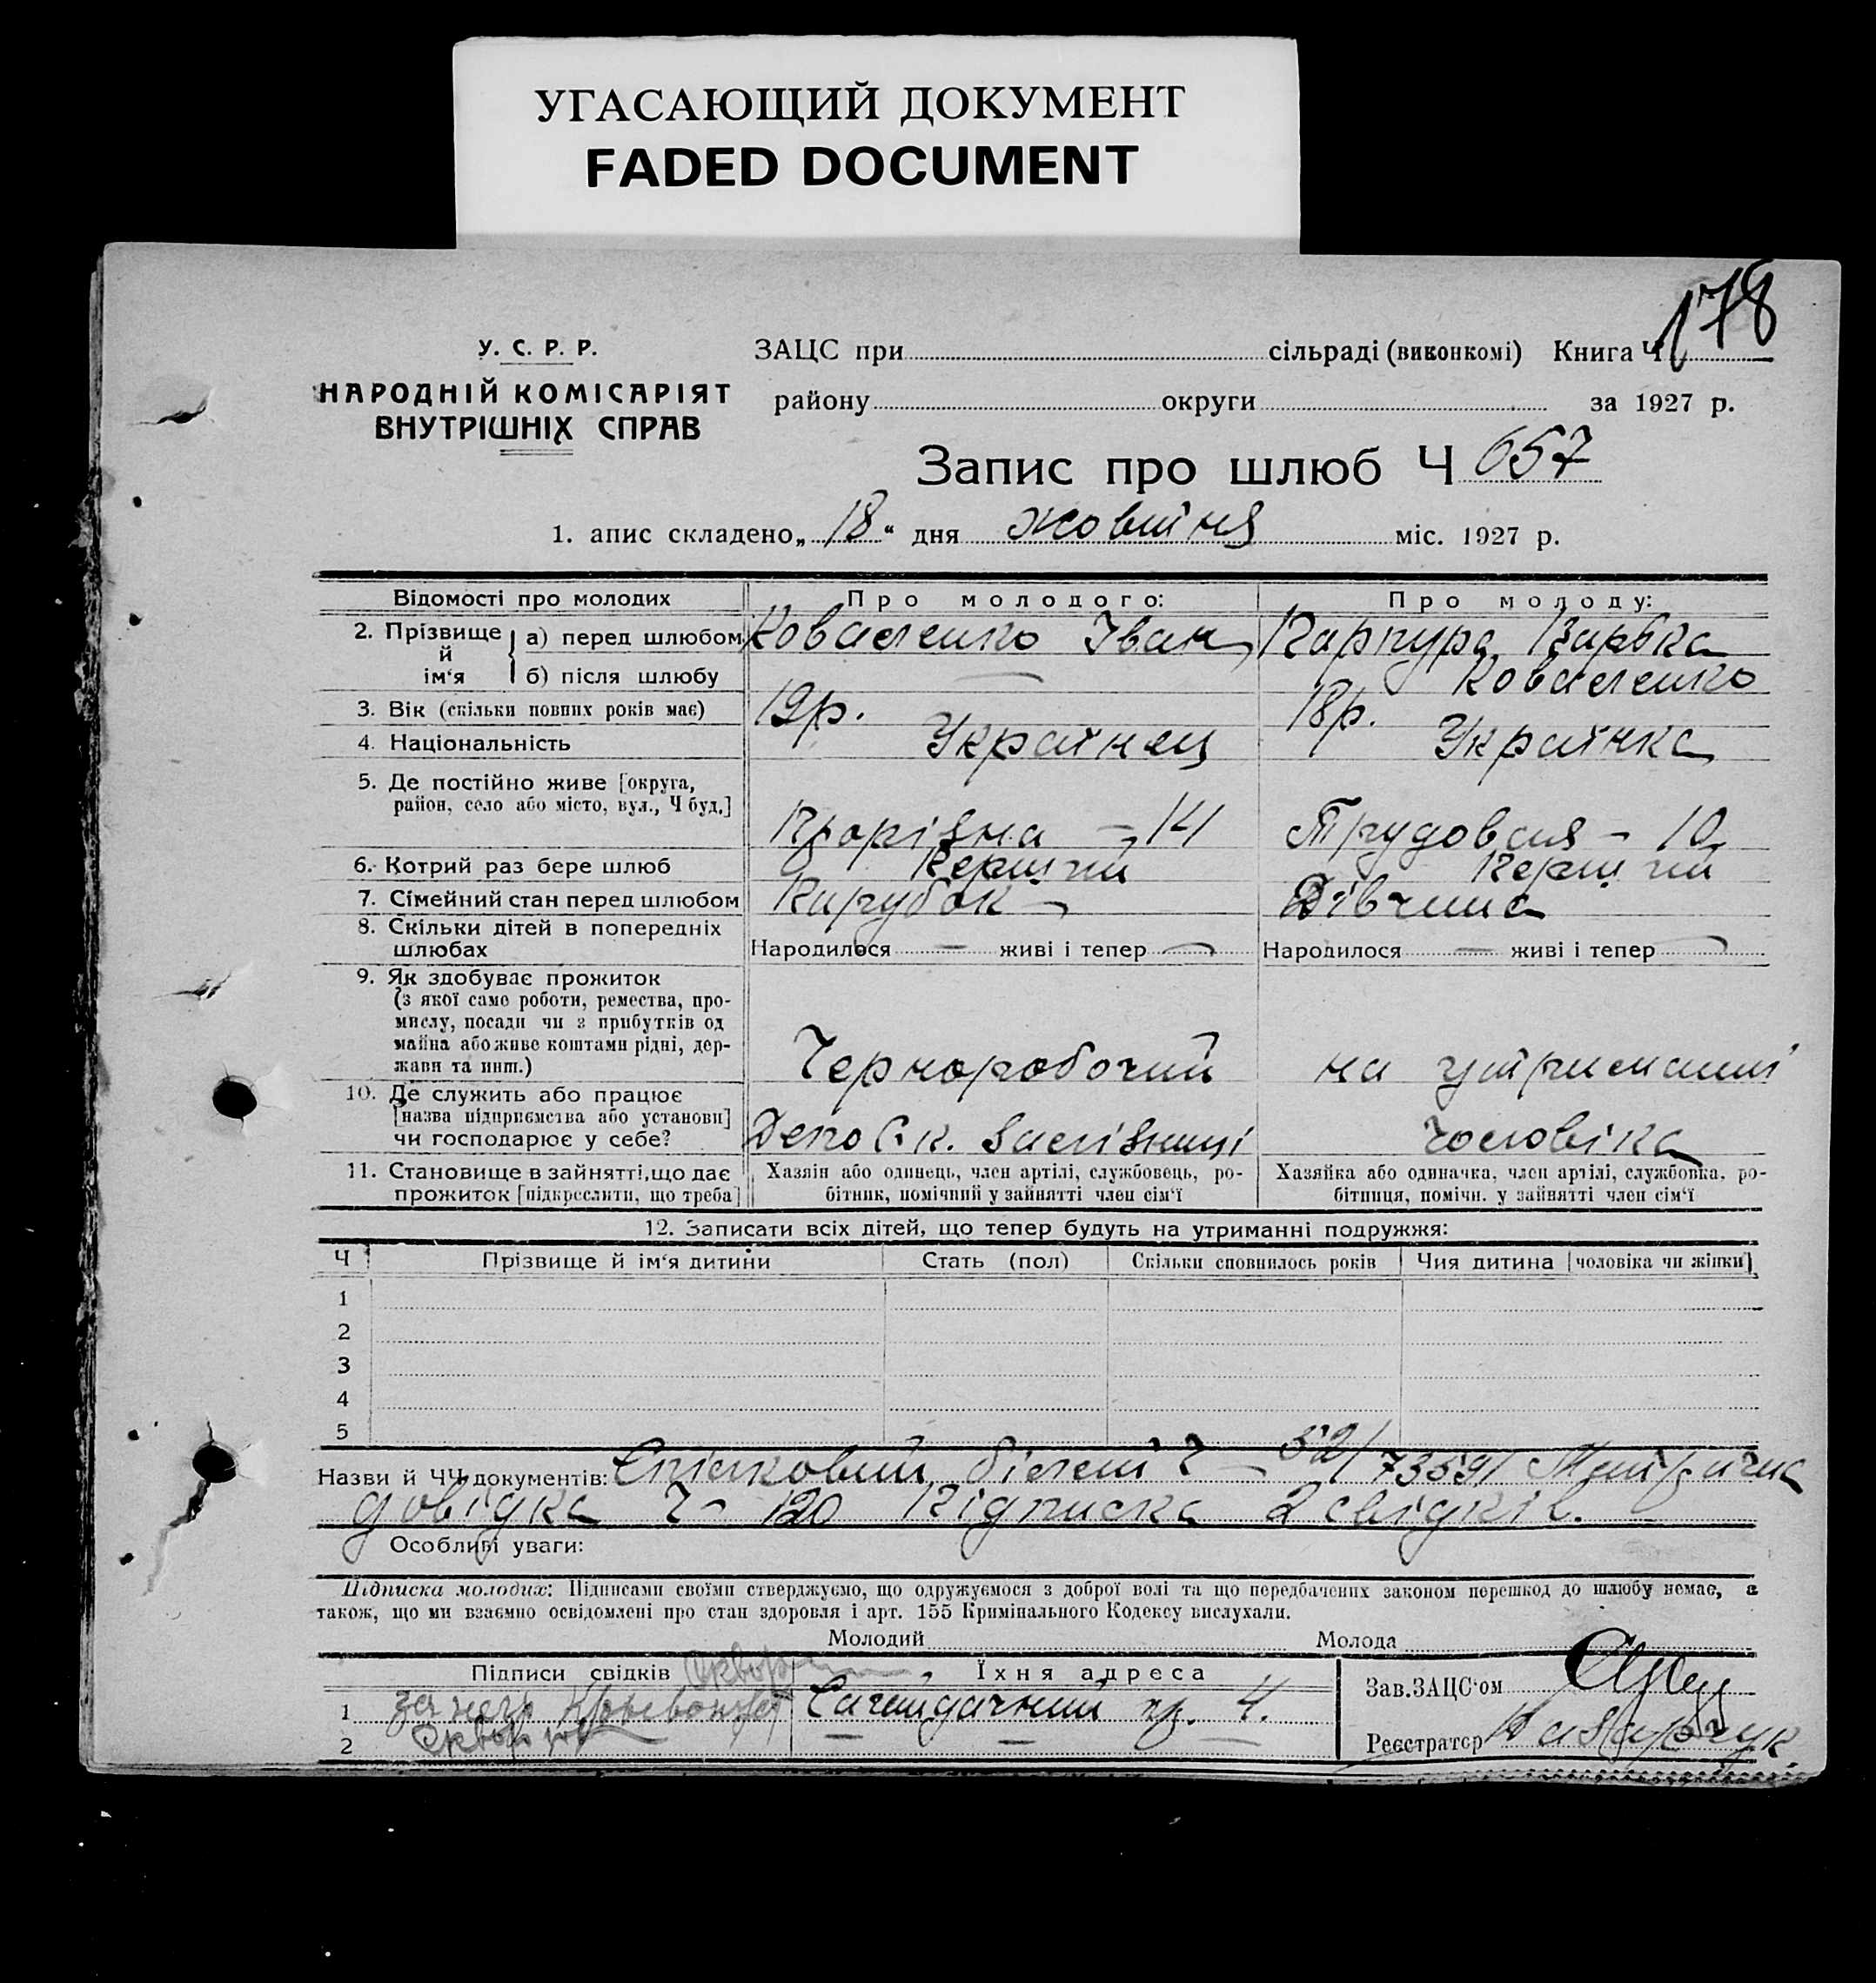 УГАСАЮЩИЙ ДОКУМЕНТ
FADED DOCUMENT
178
У. С. Р. Р.
НАРОДНІЙ КОМІСАРІЯТ
ВНУТРІШНІХ СПРАВ
ЗАЦС при сільраді (виконкомі) Книга Ч
району округи за 1927 р.
Запис про шлюб Ч 657
1. апис складено „ 18 “ дня жовтня міс. 1927 р.
Відомості про молодих Про молодого: Про молоду:
2. Прізвище й ім‘я а) перед шлюбом Коваленко Іван
б) після шлюбу Коваленко
3. Вік (скільки повних років має) 19р. 18р.
4. Національність Українец Українка
5. Де постійно живе [округа,
район, село або місто, вул., Ч буд.] – 141 Трудовая – 10
6. Котрий раз бере шлюб Перший Перший
7. Сімейний стан перед шлюбом Парубок Дівчина
8. Скільки дітей в попередніх
шлюбах Народилося — живі і тепер — Народилося — живі і тепер —
9. Як здобуває прожиток
(з якої саме роботи, ремества, про-
мислу, посади чи з прибутків од
майна або живе коштами рідні, дер-
жави та инш.) Черноробочий на утриманні
10. Де служить або працює
[назва підприємства або установи]
чи господарює у себе? Депо Ск. залізниці чоловіка
11. Становище в зайнятті, що дає
прожиток [підкреслити, що треба]
Хазяін або одинець, член артілі, службовець, ро-
бітник, помічний у зайнятті член сім‘ї
Хазяйка або одиначка, член артілі, службовка, ро-
бітниця, помічн. у зайнятті член сім‘ї
12. Записати всіх дітей, що тепер будуть на утриманні подружжя:
Ч Прізвище й ім‘я дитини Стать (пол) Скільки сповнилось років Чия дитина [чоловіка чи жінки]
1
2
3
4
5
Назви й ЧЧ документів: Спілковий білет Ч – 52/73591 Метрична
довідка Ч – 120 Підписка 2 свідків.
Особливі уваги:
Підписка молодих: Підписами своїми стверджуємо, що одружуємося з доброї волі та що передбачених законом перешкод до шлюбу немає, а
також, що ми взаємно освідомлені про стан здоровля і арт. 155 Кримінального Кодексу вислухали.
Молодий Молода
Підписи свідків Їхня адреса
1 за него Сагайдачний пр. 4.
2 — — —
Зав. ЗАЦС‘ом
Реєстратор Назарчук